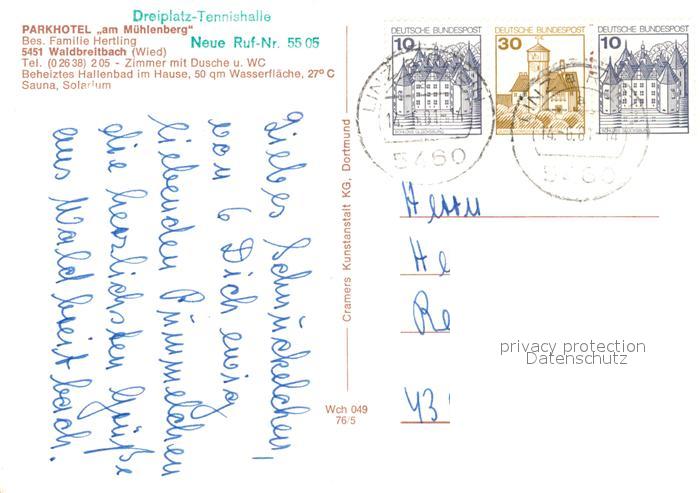 Dreiplatz-Tennishalle
PARKHOTEL „am Mühlenberg"
Bes. Familie Hertling
Neue Ruf-Nr. 55 05
5451 Waldbreitbach (Wied)
Tel. (0 26 38) 2 05 - Zimmer mit Dusche u. WC
Beheiztes Hallenbad im Hause, 50 qm Wasserfläche, 27° C
Sauna, Solarium
Liebes Schnuckelchen,
von 6 Dich ewig
liebenden Pümmelchen
die herzlichsten Grüße
aus Waldbreitbach.
Cramers Kunstanstalt KG, Dortmund
Wch 049
76/5
10 DEUTSCHE BUNDESPOST
SCHLOSS GLÜCKSBURG
30 DEUTSCHE BUNDESPOST
10 DEUTSCHE BUNDESPOST
SCHLOSS GLÜCKSBURG
LINZ
5460
LINZ
5460
Herrn
He
Re
43
privacy protection
Datenschutz